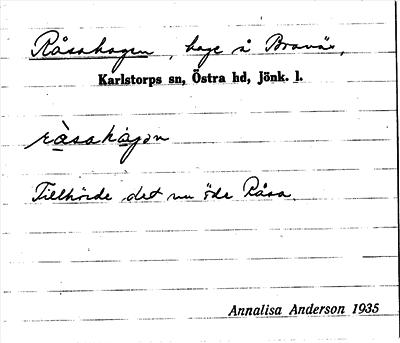 Råsahagen, hage å Braväx,
Karlstorps sn, Östra hd, Jönk. l.
ràsahàgən
Tillhörde det nu öde Råsa.
Annalisa Anderson 1935